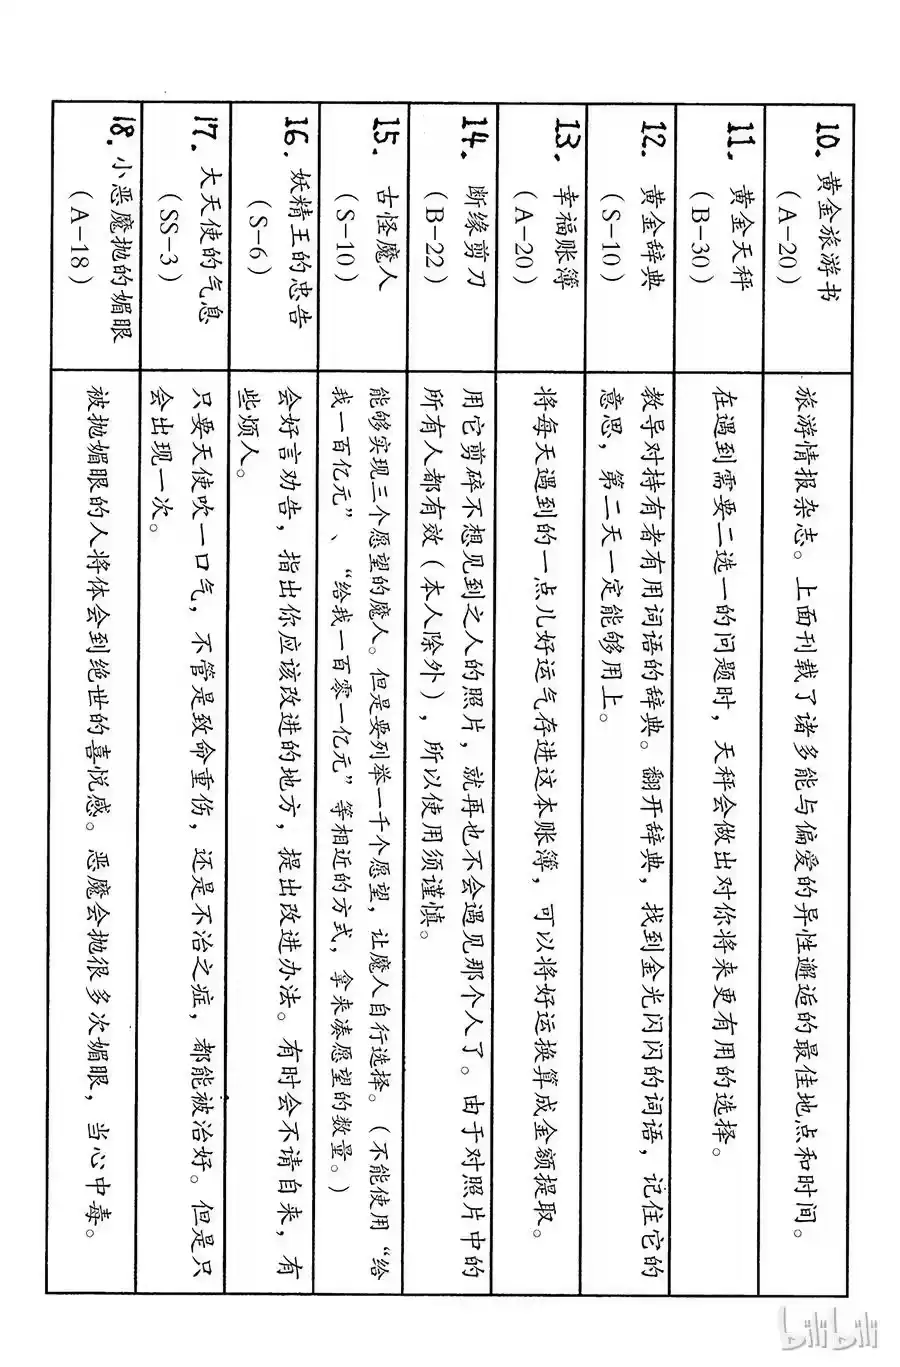 10. 黄金旅游书
(A-20)
旅游情报杂志。上面刊载了诸多能与偏爱的异性邂逅的最佳地点和时间。
11. 黄金天秤
(B-30)
在遇到需要二选一的问题时，天秤会做出对你将来更有用的选择。
12. 黄金辞典
(S-10)
教导对持有者有用词语的辞典。翻开辞典，找到金光闪闪的词语，记住它的
意思，第二天一定能够用上。
13. 幸福账簿
(A-20)
将每天遇到的一点儿好运气存进这本账簿，可以将好运换算成金额提取。
14. 断缘剪刀
(B-22)
用它剪碎不想见到之人的照片，就再也不会遇见那个人了。由于对照片中的
所有人都有效（本人除外），所以使用须谨慎。
15. 古怪魔人
(S-10)
能够实现三个愿望的魔人。但是要列举一千个愿望，让魔人自行选择。（不能使用“给
我一百亿元”、“给我一百零一亿元”等相近的方式，拿来凑愿望的数量。）
16. 妖精王的忠告
(S-6)
会好言劝告，指出你应该改进的地方，提出改进办法。有时会不请自来，有
些烦人。
17. 大天使的气息
(SS-3)
只要天使吹一口气，不管是致命重伤，还是不治之症，都能被治好。但是只
会出现一次。
18. 小恶魔抛的媚眼
(A-18)
被抛媚眼的人将体会到绝世的喜悦感。恶魔会抛很多次媚眼，当心中毒。
bilibili